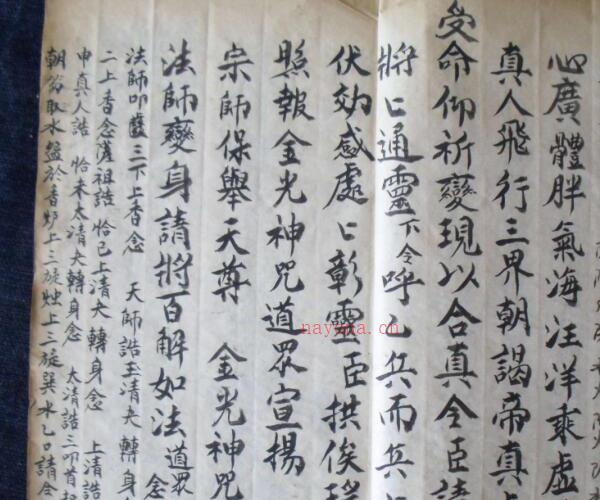 心廣體胖氣海汪洋乘虛
真人飛行三界朝謁帝真
受命仰祈變現以合真令臣請
將匕通靈下令呼乙兵而兵
伏効感處匕彰靈臣拱俟
照報金光神咒道眾宣揚
宗師保舉天尊 金光神咒
法師變身請將百解如法道眾念
法師叩齒三下上香念 天師誥玉清夬轉身
二上香念薩祖誥 恰已上清夬轉身念 上清誥
申真人誥 恰未太清夬轉身念 太清誥三叩首
朝 取水盂於香炉上三旋 上三旋 水 請令
nayona.cn